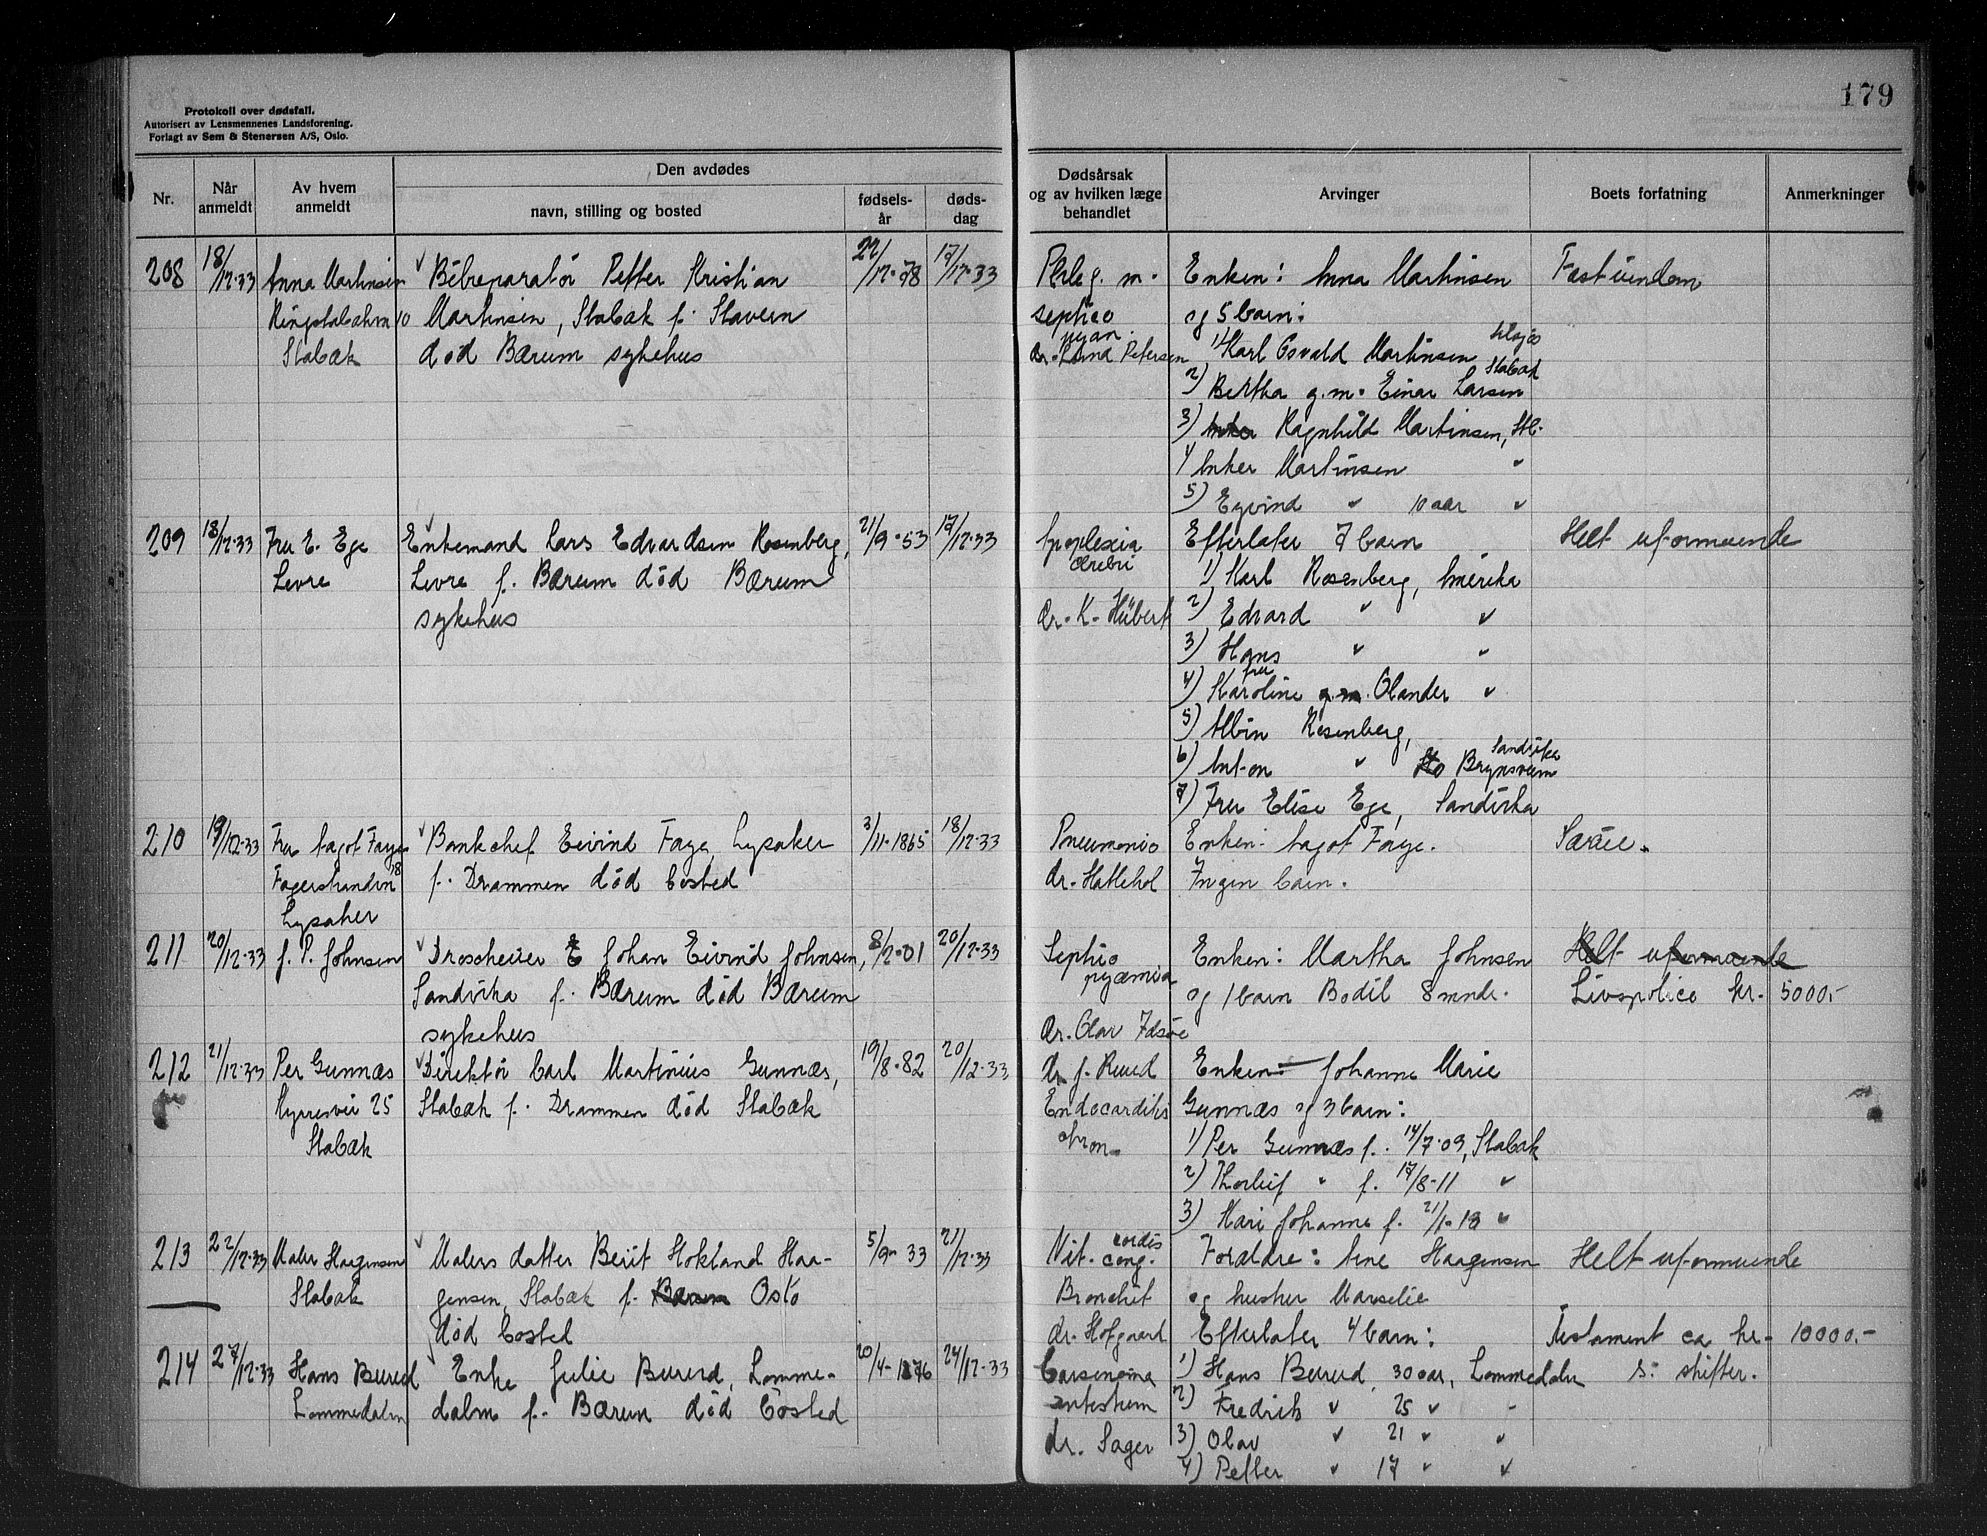 179
Protokoll over dødsfall.
Autorisert av Lensmennenes Landsforening.
Forlagt av Sem & Stenersen A/S, Oslo.
Nr.
Når anmeldt
Av hvem anmeldt
Den avdødes
navn, stilling og bosted
fødselsår
dødsdag
Dødsårsak og av hvilken læge behandlet
Arvinger
Boets forfatning
Anmerkninger
208 18/12-33 Anna Martinsen
Ringstabækvn 10
Stabæk
Bilreparatør Petter Kristian
Martinsen, Stabæk f. Stavern
død Bærum sykehus
22/12-78 17/12-33
Phleg. m.
septico
pyæm.
dr. Lund Petersen
Enken: Anna Martinsen
og 5 barn:
1) Karl Osvald Martinsen
2) Bertha g.m. Einar Larsen Stabæk
3) Ragnhild Martinsen, Stb.
4) Anker Martinsen "
5) Eyvind " 10 aar "
Fast eiendom
209 18/12-33 Fru E. Ege
Levre
Enkemand Lars Edvardsen Rosenberg,
Levre f. Bærum død Bærum
sykehus
21/9-53 17/12-33
Apoplexia
cerebri
dr. K. Hübert
Efterlater 7 barn
1) Karl Rosenberg, Amerika
2) Edvard " "
3) Hans " "
4) fru Karoline Olander "
5) Albin Rosenberg,
6) Anton " Brynsveien Sandvika
7) Fru Elise Ege, Sandvika
Helt uformuende
210 19/12-33 Fru Aagot Faye
Fagerstrandvn 18
Lysaker
Bankchef Eivind Faye, Lysaker
f. Drammen død bosted
3/11-1865 18/12-33
Pneumonio
dr. Hatlehol
Enken: Aagot Faye.
Ingen barn.
Særeie.
211 20/12-33 J. P. Johnsen
Droscheeier Johan Eivind Johnsen,
Sandvika f. Bærum død Bærum
sykehus
8/2-01 20/12-33
Septico
pyæmia
dr. Olav Idsøe
Enken: Martha Johnsen
og 1 barn Bodil 8 mndr.
Helt uformuende
Livspolice kr. 5000,-
212 21/12-33 Per Gunnæs
Myrresvei 25
Stabæk
Direktør Carl Martinius Gunnæs,
Stabæk f. Drammen død Stabæk
19/8-82 20/12-33
dr. J. Ruud
Endocarditis
chron.
Enken: Johanne Marie
Gunnæs og 3 barn:
1) Per Gunnæs f. 14/7-09, Stabæk
2) Thorleif " f. 17/8-11 "
3) Kari Johanne f. 21/1-18 "
213 22/12-33 Maler Haagensen
Stabæk
Malers datter Berit Hokland Haa-
gensen, Stabæk f. Bærum Oslo
død bosted
5/9-33 21/12-33
Vit. cordis
cong.
Bronchit
dr. Hofgaard
Foreldre: Arne Haagensen
og hustru Marselie
Helt uformuende
214 27/12-33 Hans Burud
Lommedalen
Enke Julie Burud, Lomme-
dalen f. Bærum død bosted
20/4-1876 24/12-33
Carsinoma
intestium
dr. Sager
Efterlater 4 barn:
1) Hans Burud, 30 aar, Lommedalen
2) Fredrik " 25 " "
3) Olav " 21 " "
4) Petter " 17 " "
Testament ca kr. 10000,-
s: skifter.